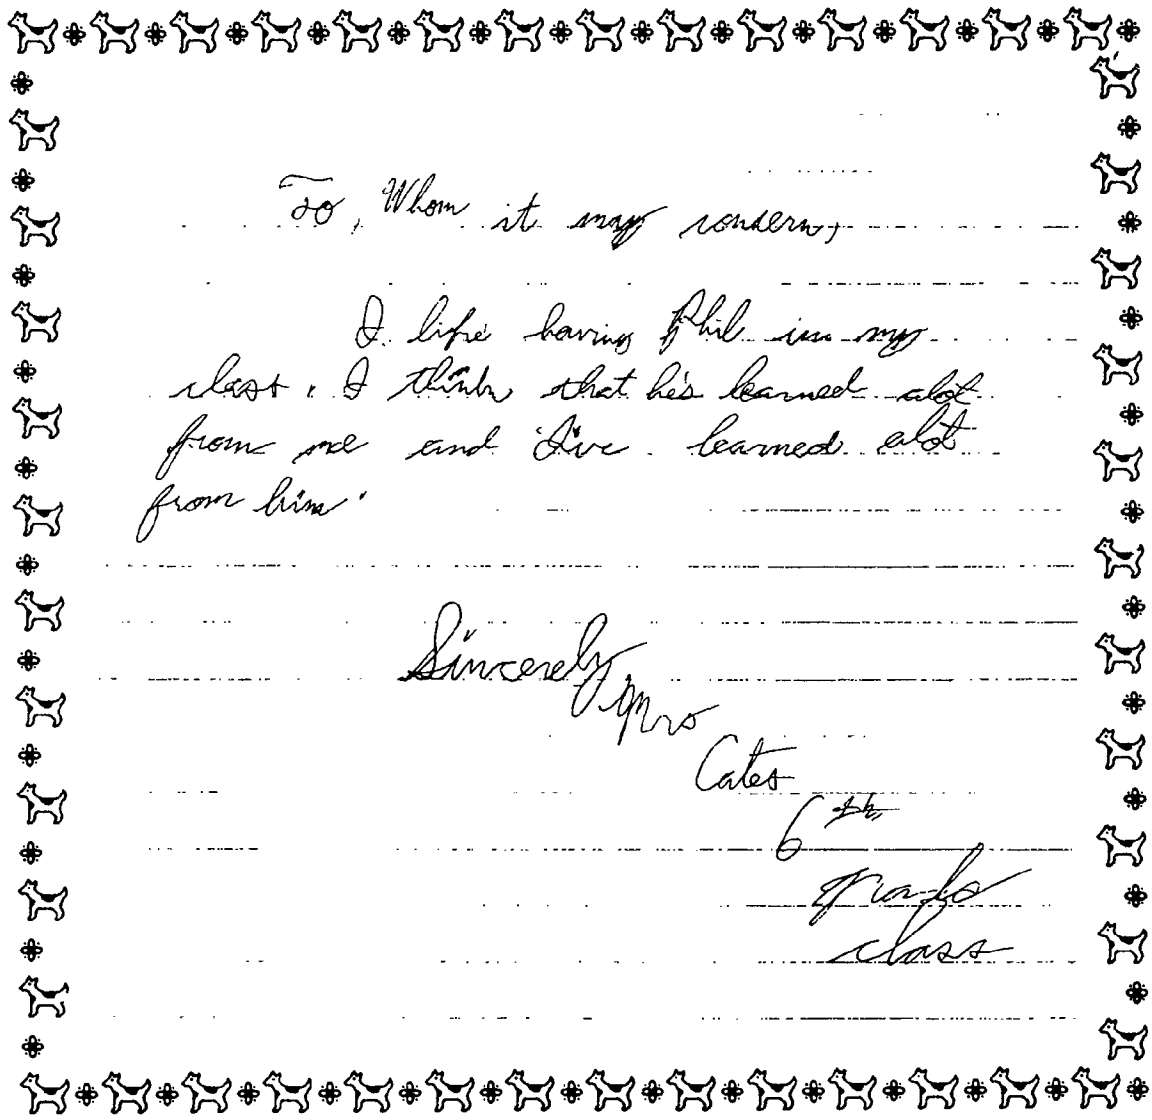 To, Whom it may concern,
I like having Phil in my
class. I think that he's learned alot
from me and I've learned alot
from him.
Sincerely
Mrs
Cates
6th
grade
class